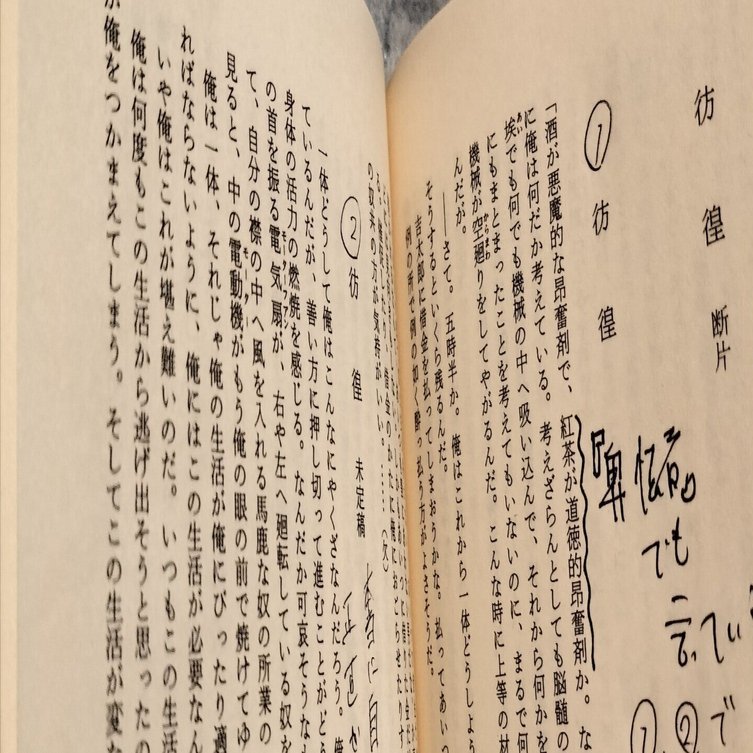 彷徨 断片
『卑怯者』
でも
言ってい
で
① ②
① 彷徨
「酒が悪魔的な昂奮剤で、紅茶が道徳的昂奮剤か。な
に俺は何だか考えている。考えざらんとしても脳髄の
埃でも何でも機械の中へ吸い込んで、それから何かを
にもまとまったことを考えてもいないのに、まるで何
機械が空廻りをしてやがるんだ。こんな時に上等の材
からまわ
んだが。
――さて。五時半か。俺はこれから一体どうしよう
そうするといくら残るんだ。
吉太郎に借金を払ってしまおうかな。払ってあいつ
例の所で例の如く酔っ払う方がよさそうだ。
の奴来の方が気持がいい。……(欠)
② 彷徨 未定稿
一体どうして俺はこんなにやくざなんだろう。俺
ているんだが、善い方に押し切って進むことがどう
身体の活力の燃焼を感じる。なんだか可哀そうなも
の首を振る電気扇が、右や左へ廻転している奴を
モーターファン
て、自分の襟の中へ風を入れる馬鹿な奴の所業の
見ると、中の電動機がもう俺の眼の前で焼けてゆ
モーター
俺は一体、それじゃ俺の生活が俺にぴったり適
ればならないように、俺にはこの生活が必要なん
いや俺はこれが堪え難いのだ。いつもこの生活
俺は何度もこの生活から逃げ出そうと思ったの
が俺をつかまえてしまう。そしてこの生活が変な